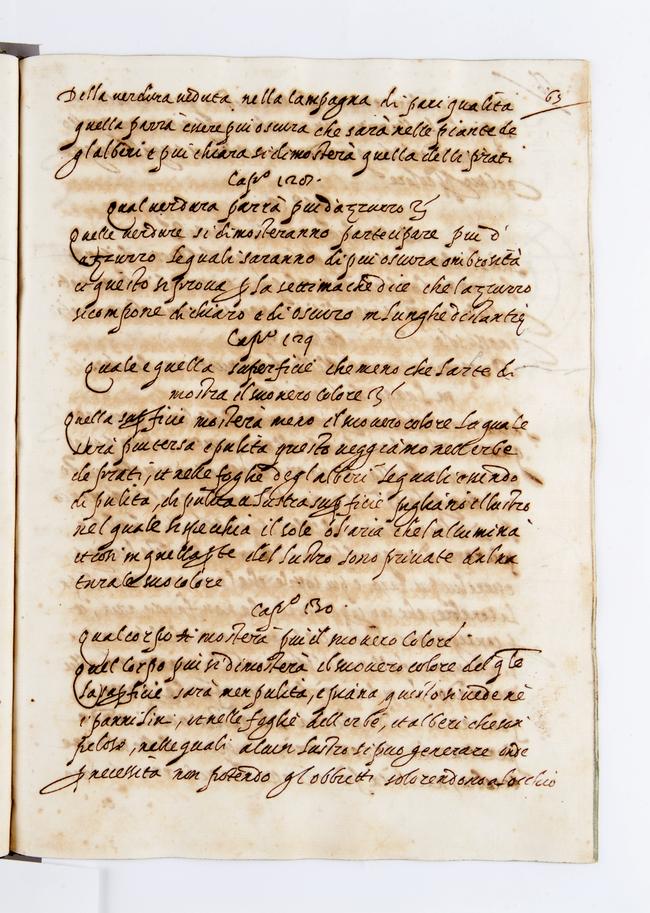 63
Della uerdura ueduta nella campagna di pari qualità
quella parrà essere piu oscura che sarà nelle piante de
gl'alberi e piu chiara si dimosterà quella delli prati
Cap.º 128.
Qual uerdura parrà piu d'azzurro
Quelle uerdure si dimosteranno partecipare piu d'
azzurro le quali saranno di piu oscura ombrosità
et questo si proua p la settima che dice che l'azzurro
si compone di chiaro e di oscuro in lunghe distantie
Cap.º 129
Quale e quella superficie che meno che l'arte di
mostra il suo uero colore
Quella supficie mosterà meno il suo uero colore la quale
sarà piu tersa e pulita questo ueggiamo nell'erbe
de prati, et nelle foglie degl'alberi le quali essendo
di pulita, di pulita e lustra supficie pigliano il lustro
nel quale si specchia il sole o l'aria che l'allumina
et così in quella pte del lustro sono priuate dal na
turale suo colore
Cap.º 130.
Qual corpo di mosterà piu il suo uero colore
Quel corpo piu si dimosterà il suo uero colore del qle
la supficie sarà men pulita, e piana questo si uede ne
i panni lini, et nelle foglie dell'erbe, et alberi che sun
pelose, nelle quali alcun lustro si puo generare onde
p necessità non potendo gl'obbietti solo rendono a l'occhio